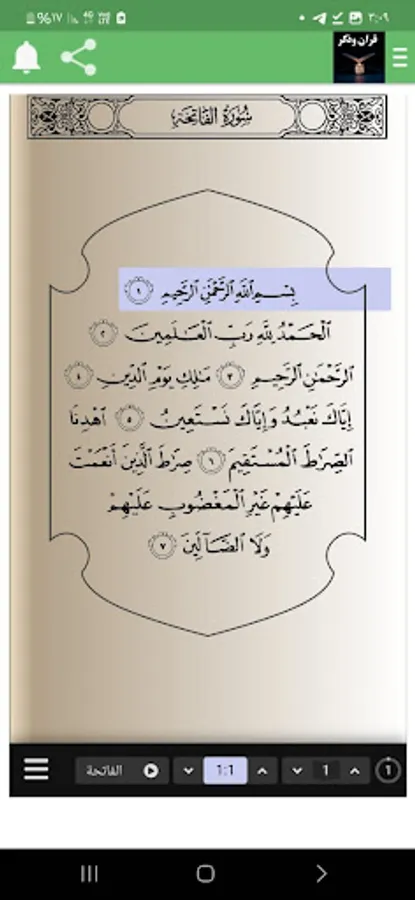 ٣:٠٩
%١٧
قرآن وذكر
سُورَةُ الفَاتِحَةِ
بِسْمِ ٱللَّهِ ٱلرَّحْمَٰنِ ٱلرَّحِيمِ ١
ٱلْحَمْدُ لِلَّهِ رَبِّ ٱلْعَٰلَمِينَ ٢
ٱلرَّحْمَٰنِ ٱلرَّحِيمِ ٣ مَٰلِكِ يَوْمِ ٱلدِّينِ ٤
إِيَّاكَ نَعْبُدُ وَإِيَّاكَ نَسْتَعِينُ ٥ ٱهْدِنَا
ٱلصِّرَٰطَ ٱلْمُسْتَقِيمَ ٦ صِرَٰطَ ٱلَّذِينَ أَنْعَمْتَ
عَلَيْهِمْ غَيْرِ ٱلْمَغْضُوبِ عَلَيْهِمْ
وَلَا ٱلضَّآلِّينَ ٧
الفاتحة 1:1 1 1